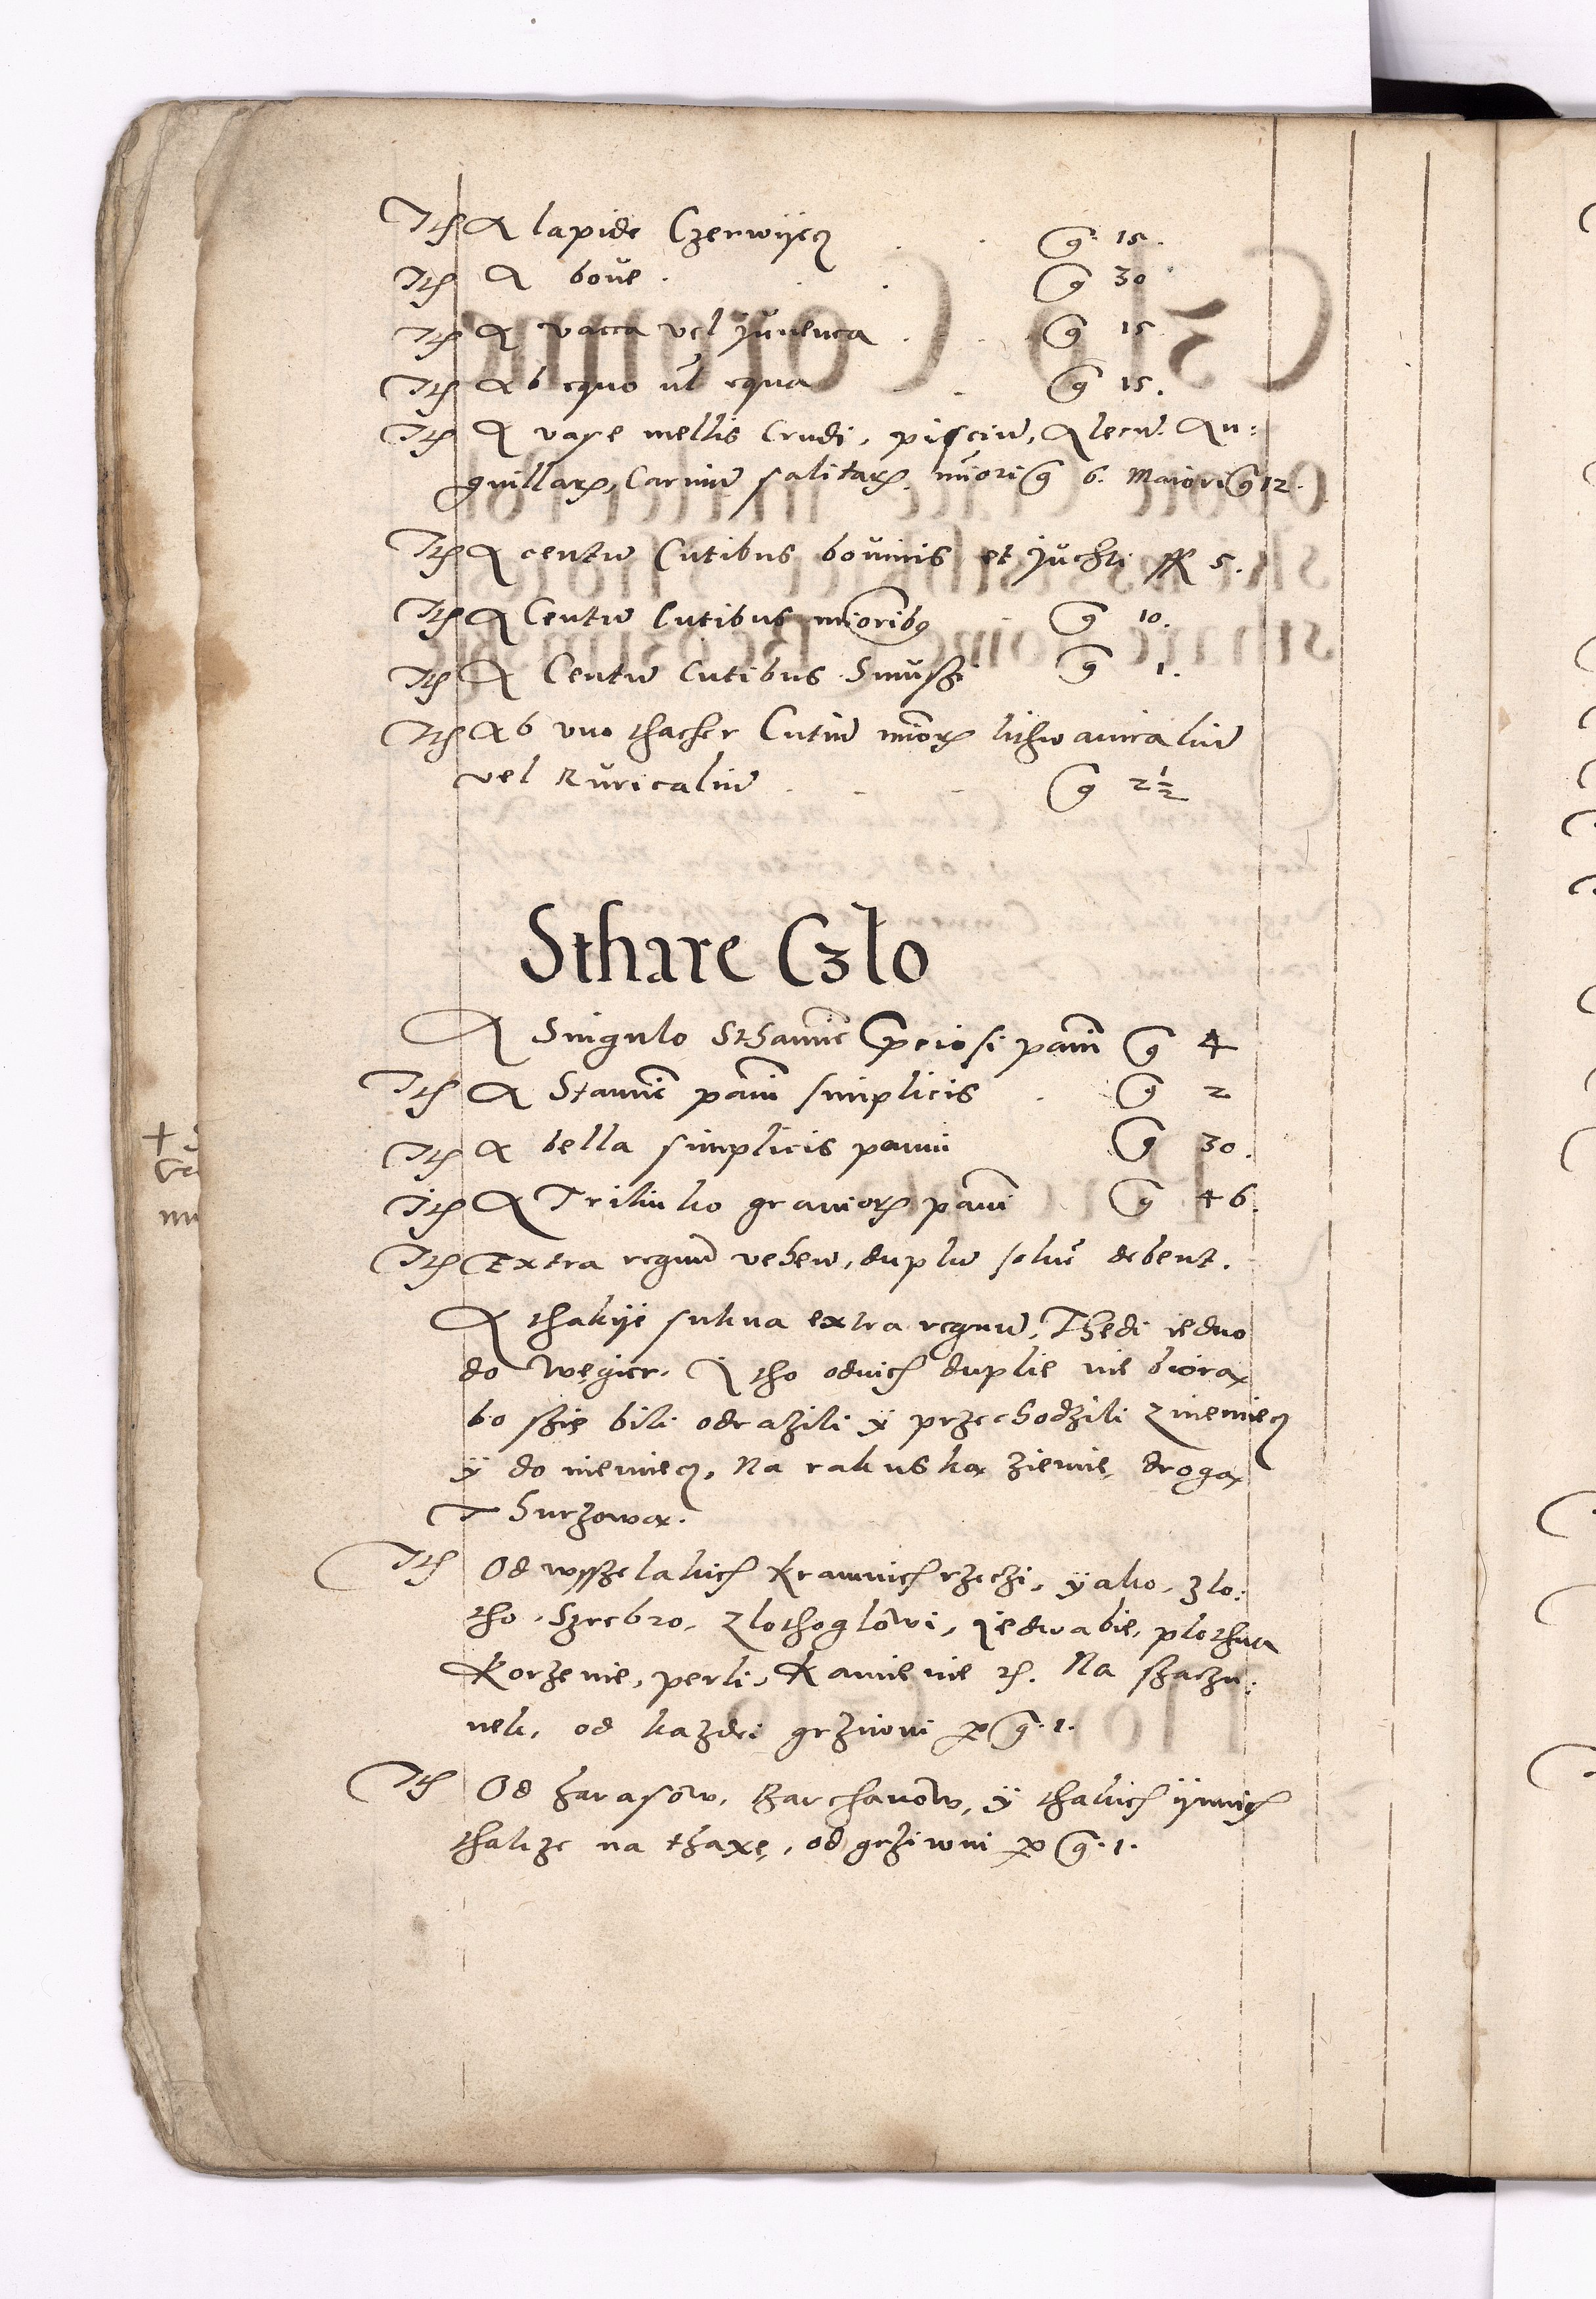 Itē A lapide Czerwyecz g 15.
Itē A boue g 30
Itē A vacca vel Juuenca g 15
Itē Ab equo vl equa g 15.
Itē A vase mellis Crudi, pisciū, Alecū. An:
guillarꝝ, Carniū salitarꝝ, mīori g 6. Maiori g 12.
Itē A centū Cutibus bouinis et Juchti 5.
Itē A Centū Cutibus mīoribꝯ g 10.
Itē A Centū Cutibus Smuszi g 1.
Itē Ab vno thacher Cutiū mīorꝝ lithwanicaliū
vel Ruricaliū g 2½
Sthare Czlo
A Singulo Sthamīe p̄ciosi pāni g 4
Itē A Stamīe pāni simplicis g 2
Itē A bella simplicis panni g 30.
Itē A Trilinko grauiorꝝ pāni g 46.
Itē Extra regnū vehen, duplū soluē debent.
A thakije sukna extra regnū, Thedi iedno
do Węgier. I tho odnich duplie nie biorą
bo szię bili odrazili ÿ przechodzili z niemiecz
ÿ do niemiecz, Na rakuską ziemię, drogą
Thurzową.
Itē Od wszelakich Kramnich rzeczi, ÿako, zlo:
tho, Szrebro, zlothoglowi, Jedwabie, plothna
Korzenie, perli, Kamienie etc. Na szaczu:
nek, od kazdei grziwni po g. 1.
Itē Od harasow, Barchanow, ÿ thakich ÿnnich
thakze na thaxę, od grziwni po g. 1.